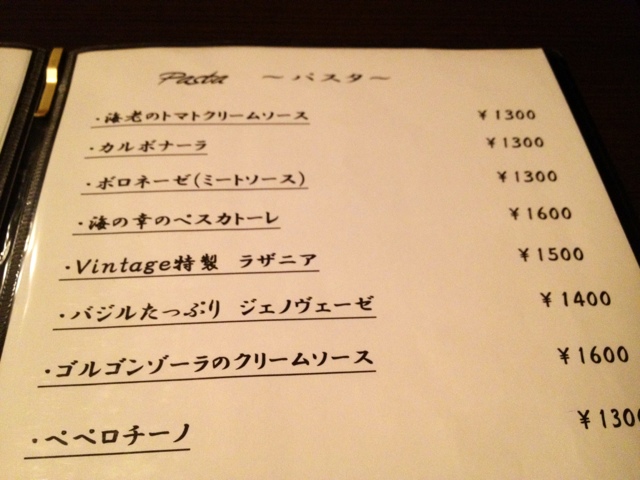 Pasta ～パスタ～
・海老のトマトクリームソース ￥1300
・カルボナーラ ￥1300
・ボロネーゼ(ミートソース) ￥1300
・海の幸のペスカトーレ ￥1600
・Vintage特製 ラザニア ￥1500
・バジルたっぷり ジェノヴェーゼ ￥1400
・ゴルゴンゾーラのクリームソース ￥1600
・ペペロチーノ ￥1300